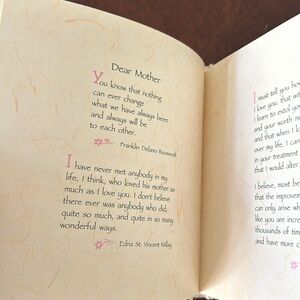 Dear Mother
You know that nothing
can ever change
what we have always been
and always will be
to each other.
Franklin Delano Roosevelt
I have never met anybody in my
life, I think, who loved his mother as
much as I love you. I don't believe
there ever was anybody who did,
quite so much, and quite in so many
wonderful ways.
Edna St. Vincent Millay
I must tell you how
love you, that
I learn to extol
and your worth
and that when I
over my life, I can
in your treatment
that I would alter.
I believe, most
that the improvement
can only arise
like you are
thousands of
and have more